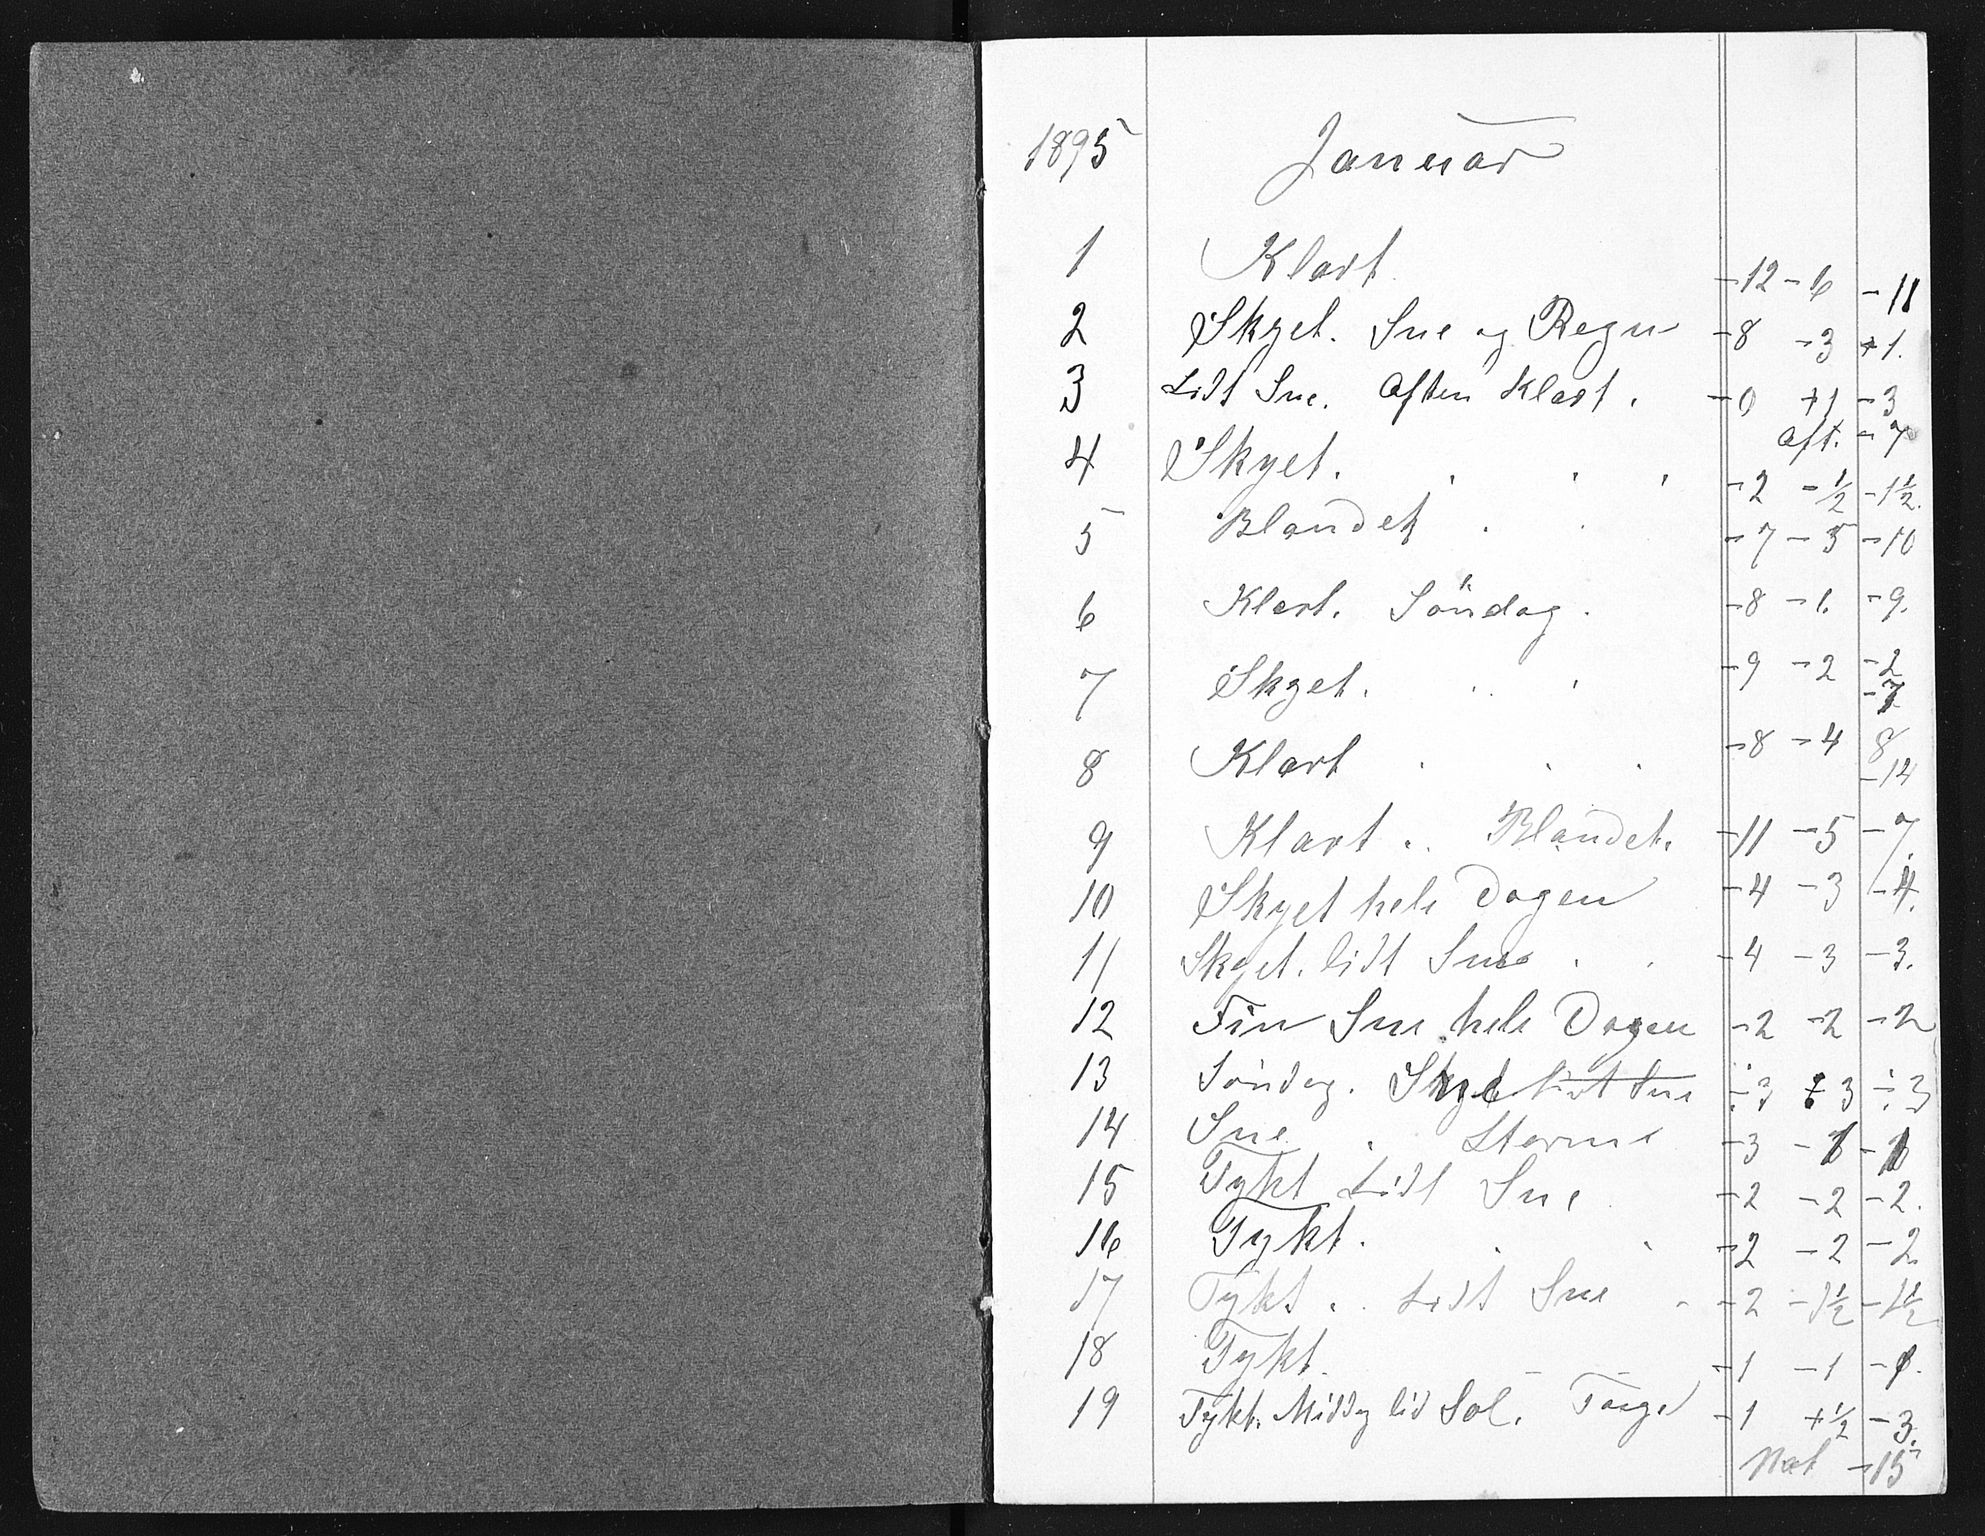 1895 Januar
1 Klart -12 -6 -11
2 Skyet. Sne og Regn -8 -3 +1.
3 Lidt Sne. Aften Klart. -0 +1 -3
Aft. -7
4 Skyet. -2 -1/2 -1 1/2.
5 Blandet. -7 -5 -10
6 Klart. Söndag. -8 -1. -9.
7 Skyet. -9 -2 -2
8 Klart -8 -4 8
-14
9 Klart .. Blandet. -11 -5 -7.
10 Skyet hele Dagen -4 -3 -4.
11 Skyet. lidt Sne -4 -3 -3.
12 Fin Sne hele Dagen -2 -2 -2
13 Söndag. Skyet lidt Sne ÷3 ÷3 ÷3
14 Sne. Storm -3
15 Tykt Lidt Sne -2 -2 -2.
16 Tykt. -2 -2 -2
17 Tykt .. Lidt Sne -2 -1 1/2 -1 1/2
18 Tykt. -1 -1
19 Tykt. Middag lid Sol. -1 +1/2 -3.
Nat -15